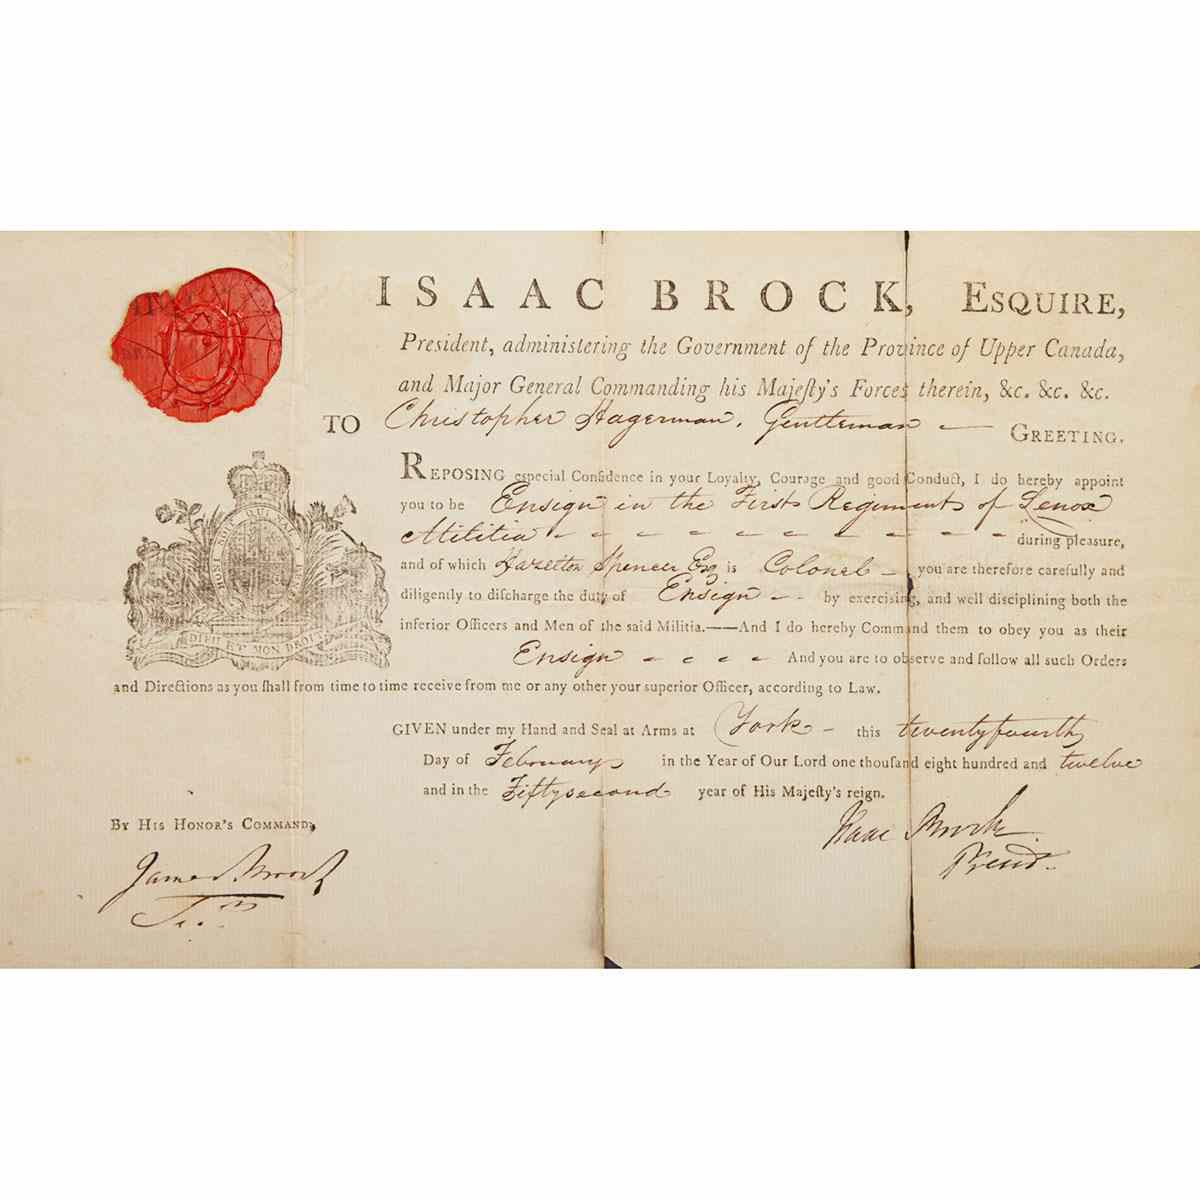 ISAAC BROCK, ESQUIRE,
President, administering the Government of the Province of Upper Canada,
and Major General Commanding his Majeſty's Forces therein, &c. &c. &c.
TO Christopher Hagerman, Gentleman — GREETING.
REPOSING especial Confidence in your Loyalty, Courage and good Conduct, I do hereby appoint
you to be Ensign in the First Regiment of Lenox
Militia - - - - - - - - - - - during pleasure,
and of which Hazelton Spencer Esq is Colonel - you are therefore carefully and
diligently to diſcharge the duty of Ensign - - by exercising, and well disciplining both the
inferior Officers and Men of the said Militia.——And I do hereby Command them to obey you as their
Ensign - - - - And you are to observe and follow all such Orders
and Directions as you ſhall from time to time receive from me or any other your superior Officer, according to Law.
HONI SOIT QUI MAL Y
DIEU ET MON DROIT
GIVEN under my Hand and Seal at Arms at York - this twentyfourth
Day of February in the Year of Our Lord one thouſand eight hundred and twelve
and in the Fiftysecond year of His Majeſty's reign.
Isaac Brock
Presid.
BY HIS HONOR'S COMMAND,
James Brock